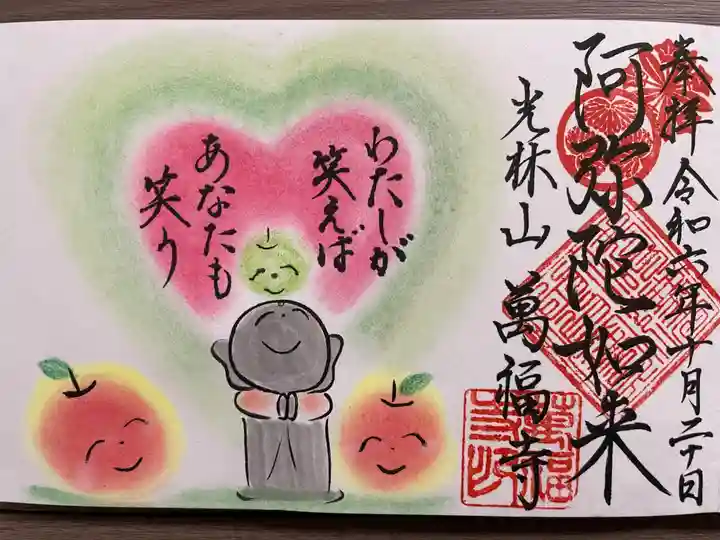 奉拝 令和六年十月二十日
阿弥陀如来
光林山 萬福寺
わたしが
笑えば
あなたも
笑う